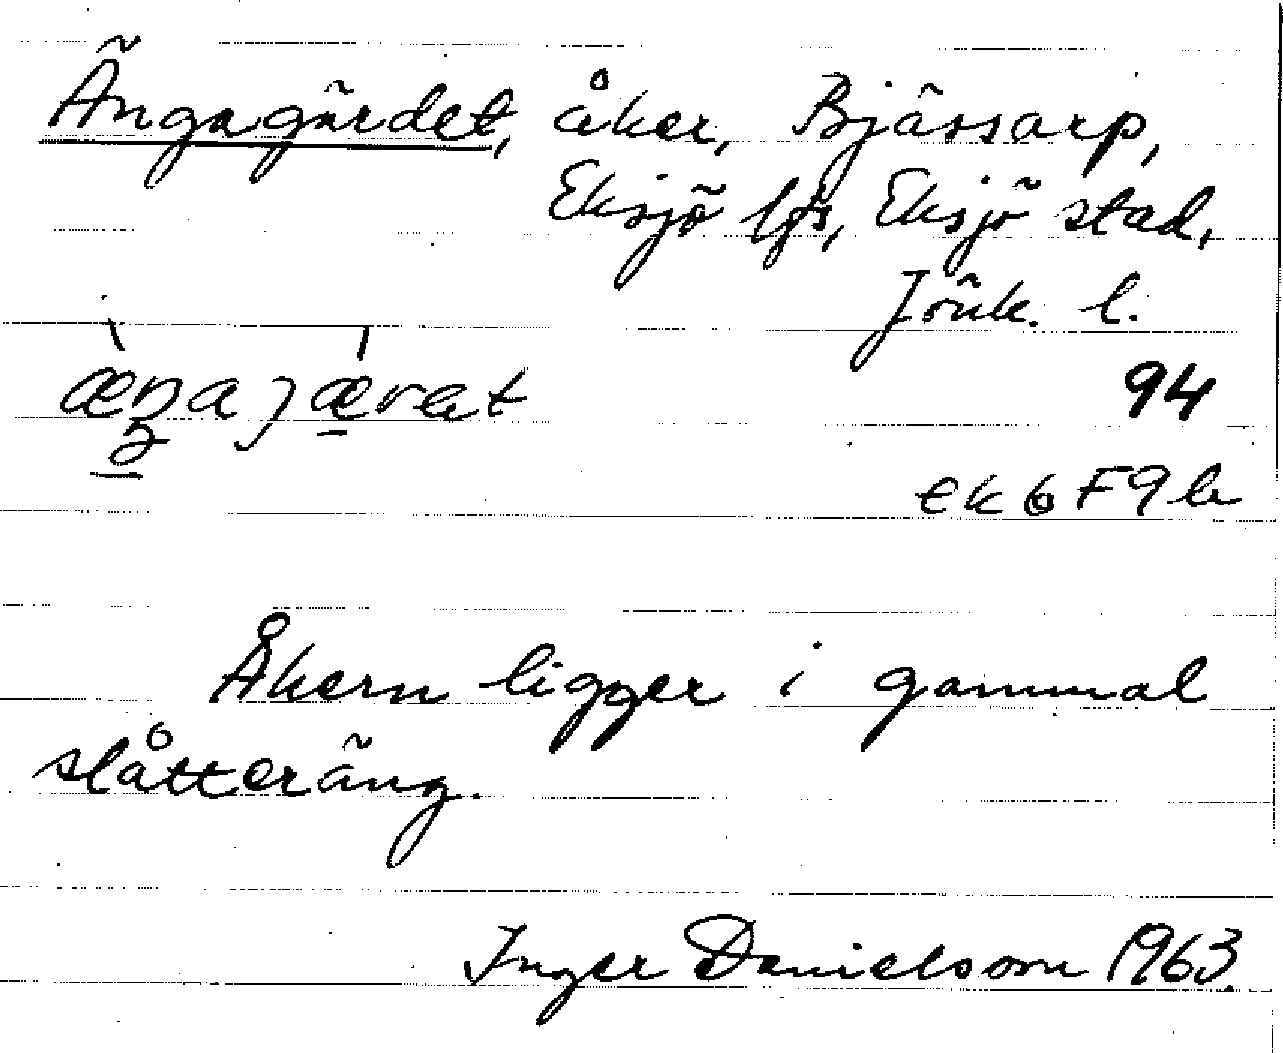 Ängagärdet, åker, Bjässarp,
Eksjö lfs, Eksjö stad,
Jönk. l.
94
ek 6 F9b
Åkern ligger i gammal
slåtteräng.
Inger Danielsson 1963.